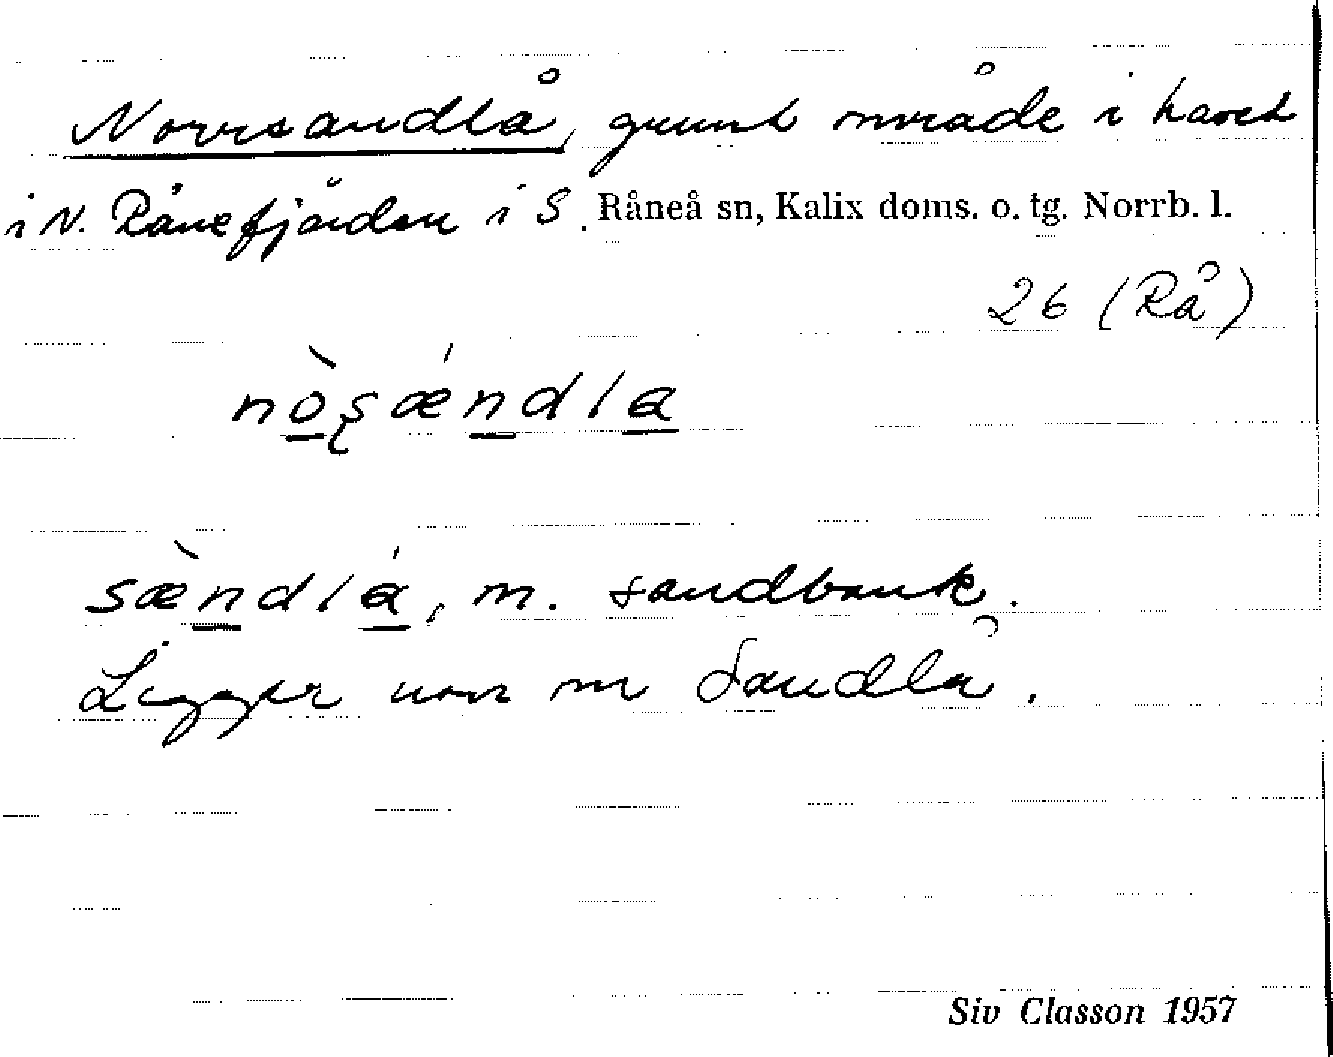 Norrsandlå, grunt område i havet
i N. Rånefjärden i S. Råneå sn, Kalix doms. o. tg. Norrb. l.
26 (Rå)
nòʂǽndla
sæ̀ndlá, m. sandbank.
Ligger norr om Sandlå.
Siv Classon 1957